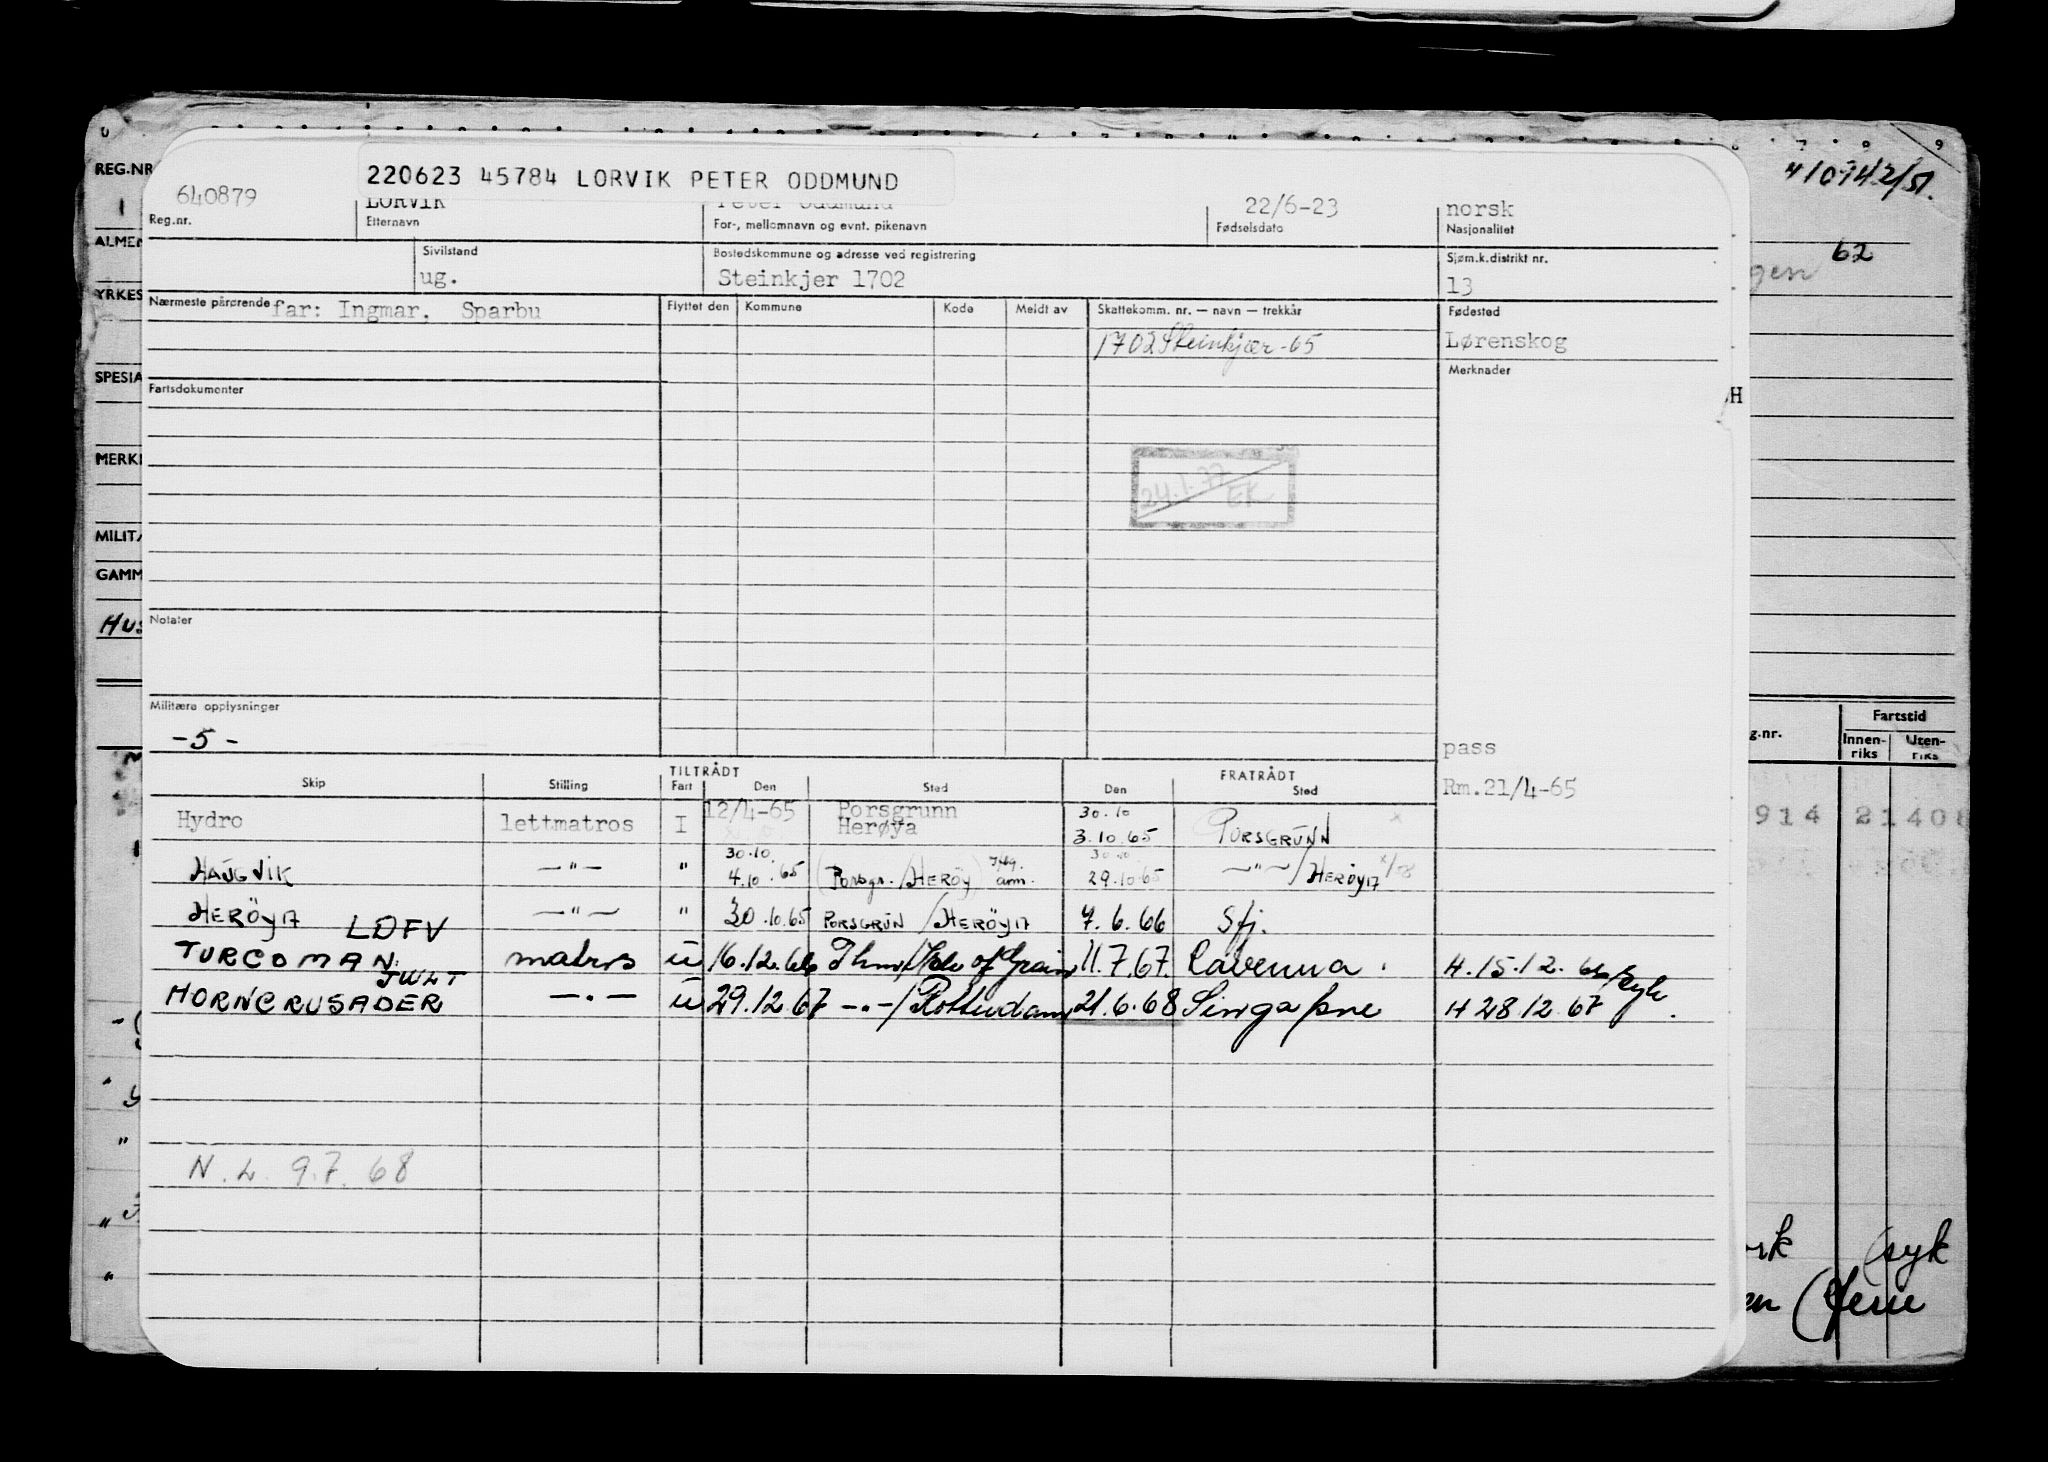 0 7 8 9
REG.NR
1
ALMEN
YRKES
SPESIA
MERK
MILITÆ
GAMM
HUS
410142/51.
62
gen
H
g.nr.
Fartstid
Innen-
riks
Uten-
riks
914 21408
syk
220623 45784 LORVIK PETER ODDMUND
640879 LORVIK Peter Oddmund 22/6-23 norsk
Reg.nr. Etternavn For-, mellomnavn og evnt. pikenavn Fødselsdato Nasjonalitet
Sivilstand Bostedskommune og adresse ved registrering Sjøm.k.distrikt nr.
ug. Steinkjer 1702 13
Nærmeste pårørende far: Ingmar, Sparbu Flyttet den Kommune Kode Meldt av Skattekomm. nr. — navn — trekkår Fødested
1702 Steinkjær-65 Lørenskog
Fartsdokumenter Merknader
24.1.77 EK
Notater
Militære opplysninger
-5-
pass
TILTRÅDT FRATRÅDT
Skip Stilling Fart Den Sted Den Sted Rm.21/4-65
Hydro lettmatros I 12/4-65 Porsgrunn Herøya 30.10 3.10.65 PORSGRUNN x
HAUGVIK —"— " 30.10. 4.10.65 (Porsgr./HERÖY) 30.10 29.10.65 —"—/HERÖYA
HERÖYA —"— " 30.10.65 PORSGRUN/HERÖYA 7.6.66 Sfj.
LDFV
TURCOMAN matros u 16.12.66 Thm/Isle of Grain 11.7.67. Ravenna. H.15.12.66/syk
JWLT
HORNCRUSADER —"— u 29.12.67 —"—/Rotterdam 21.6.68 Singapore H 28.12.67.
N.L. 9.7.68